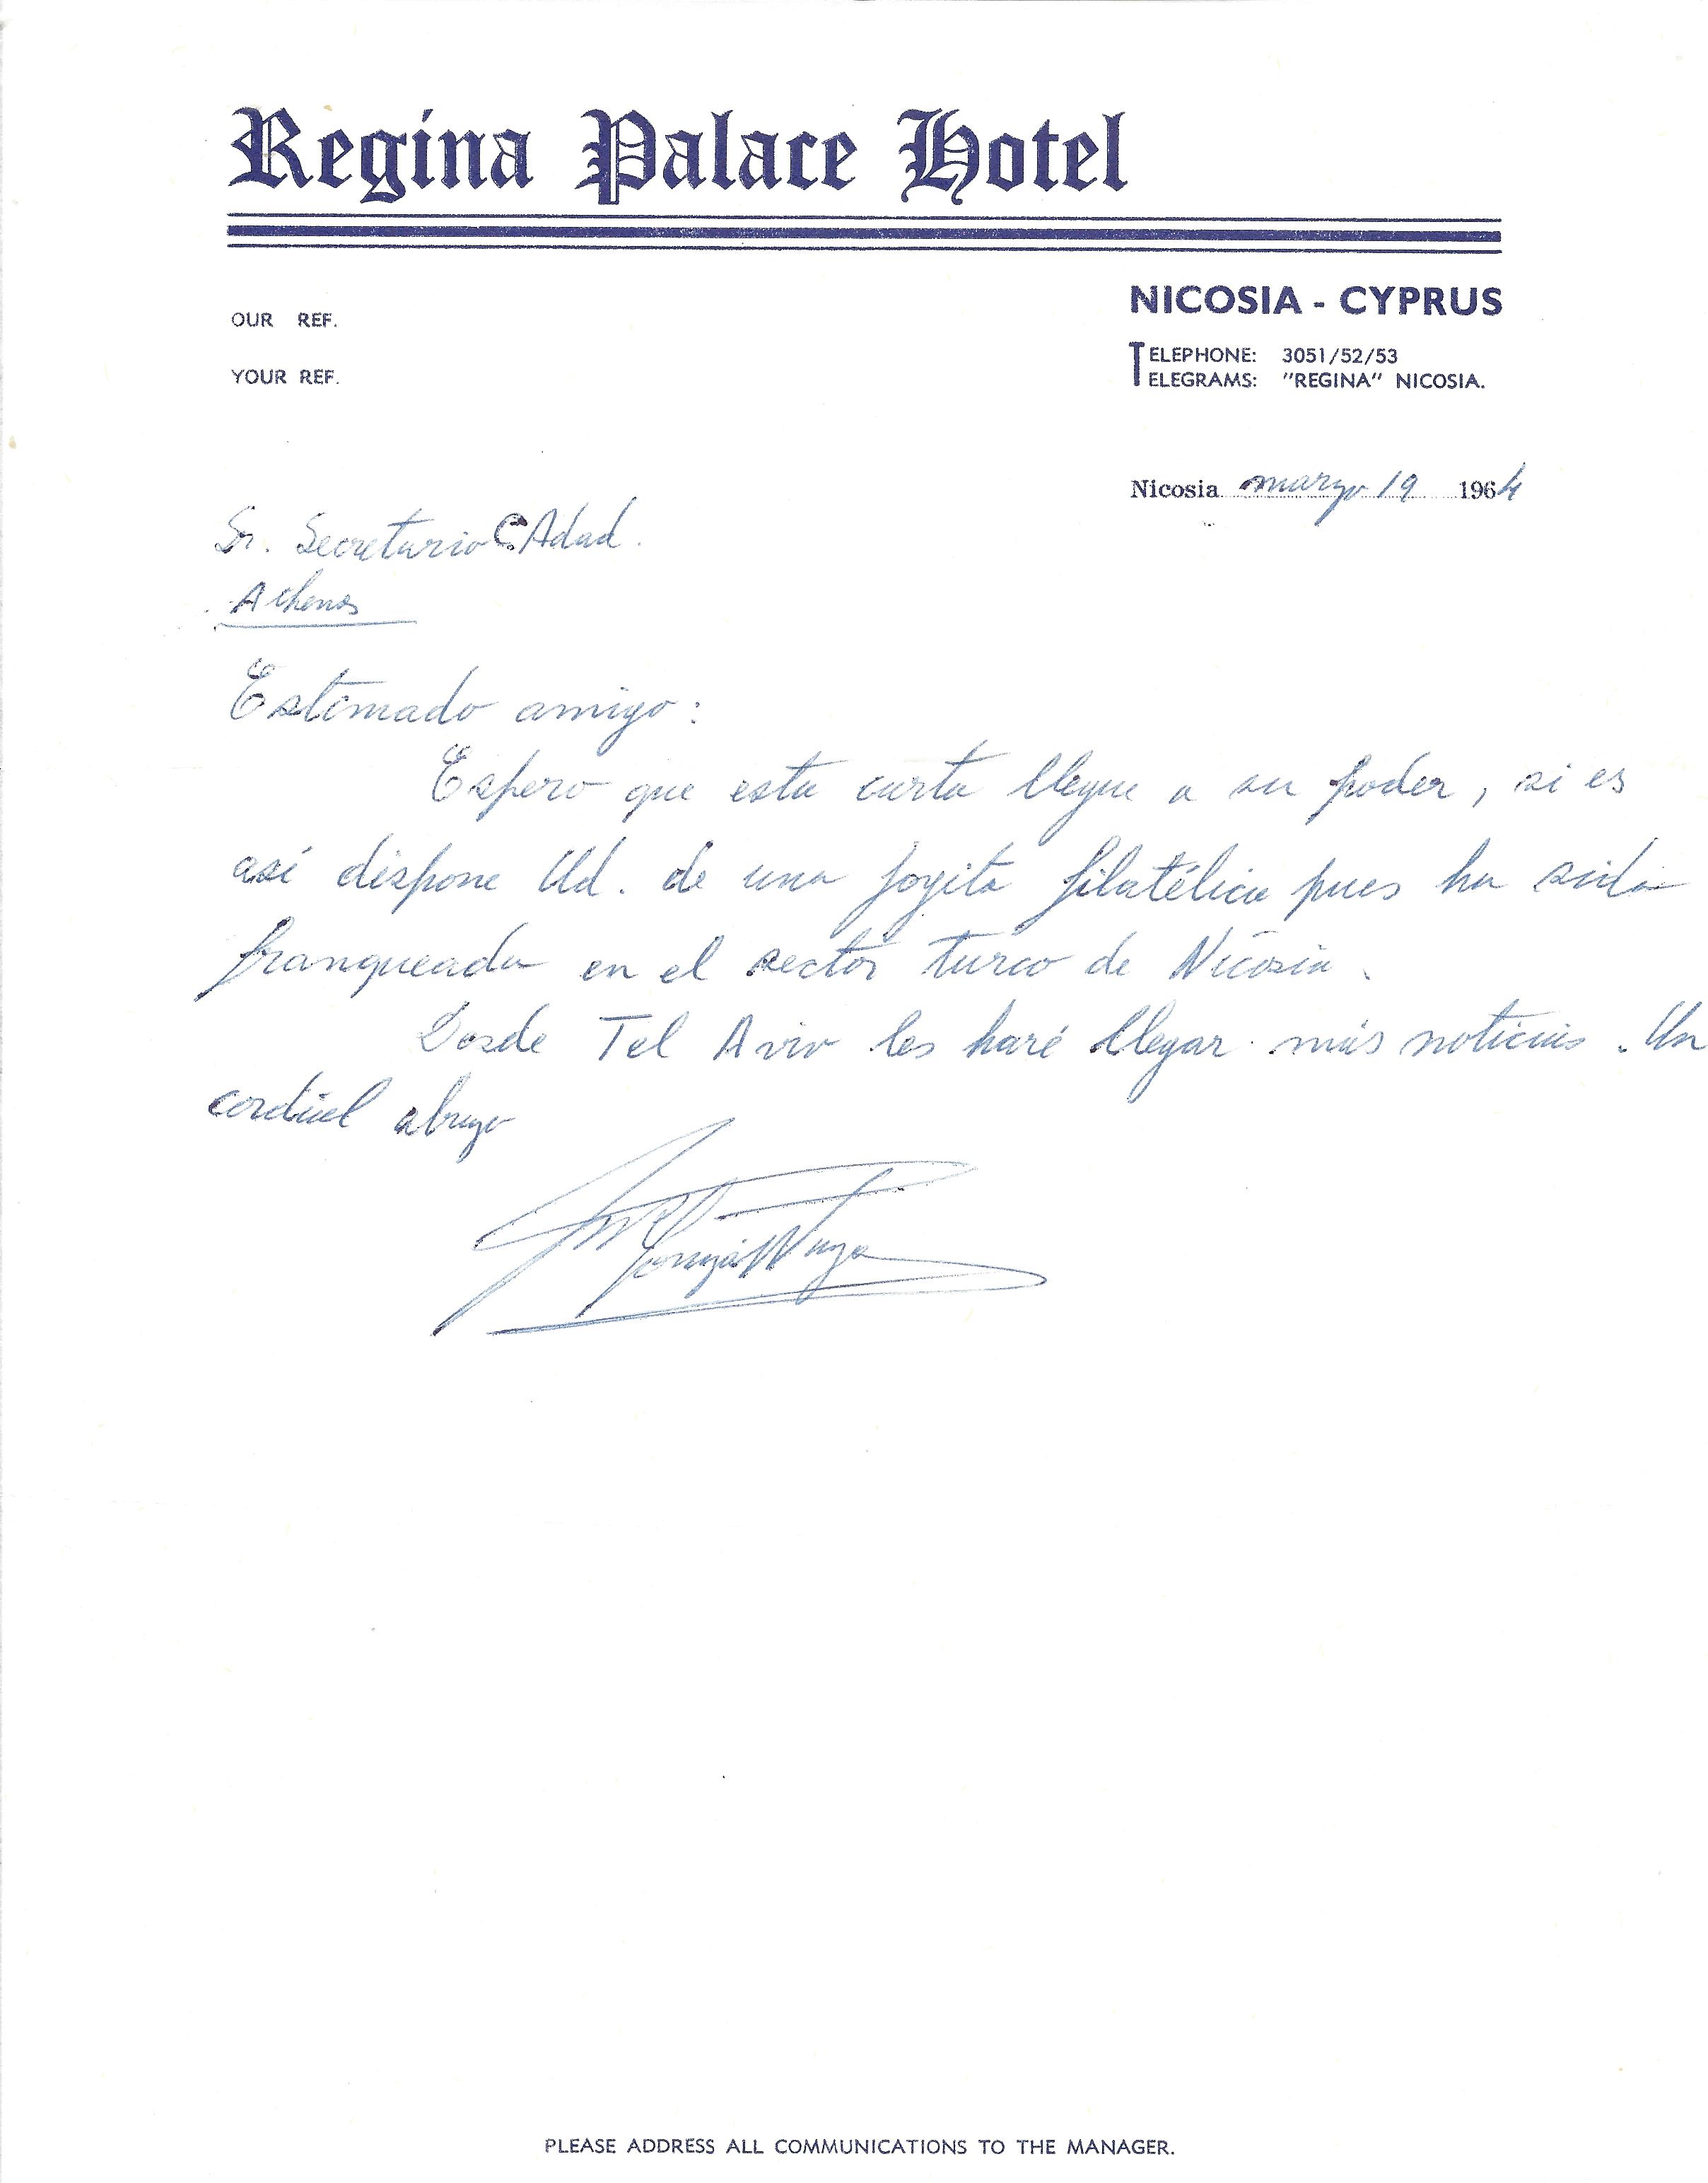 Regina Palace Hotel
NICOSIA - CYPRUS
OUR REF.
TELEPHONE: 3051/52/53
YOUR REF.
TELEGRAMS: "REGINA" NICOSIA.
Nicosia marzo 19 1964
Sr. Secretario C. Adad.
Athenas
Estimado amigo:
Espero que esta carta llegue a su poder, si es
así dispone Ud. de una joyita filatélica pues ha sido
franqueada en el sector turco de Nicosia.
Desde Tel Aviv les haré llegar más noticias. Un
cordial abrazo
PLEASE ADDRESS ALL COMMUNICATIONS TO THE MANAGER.